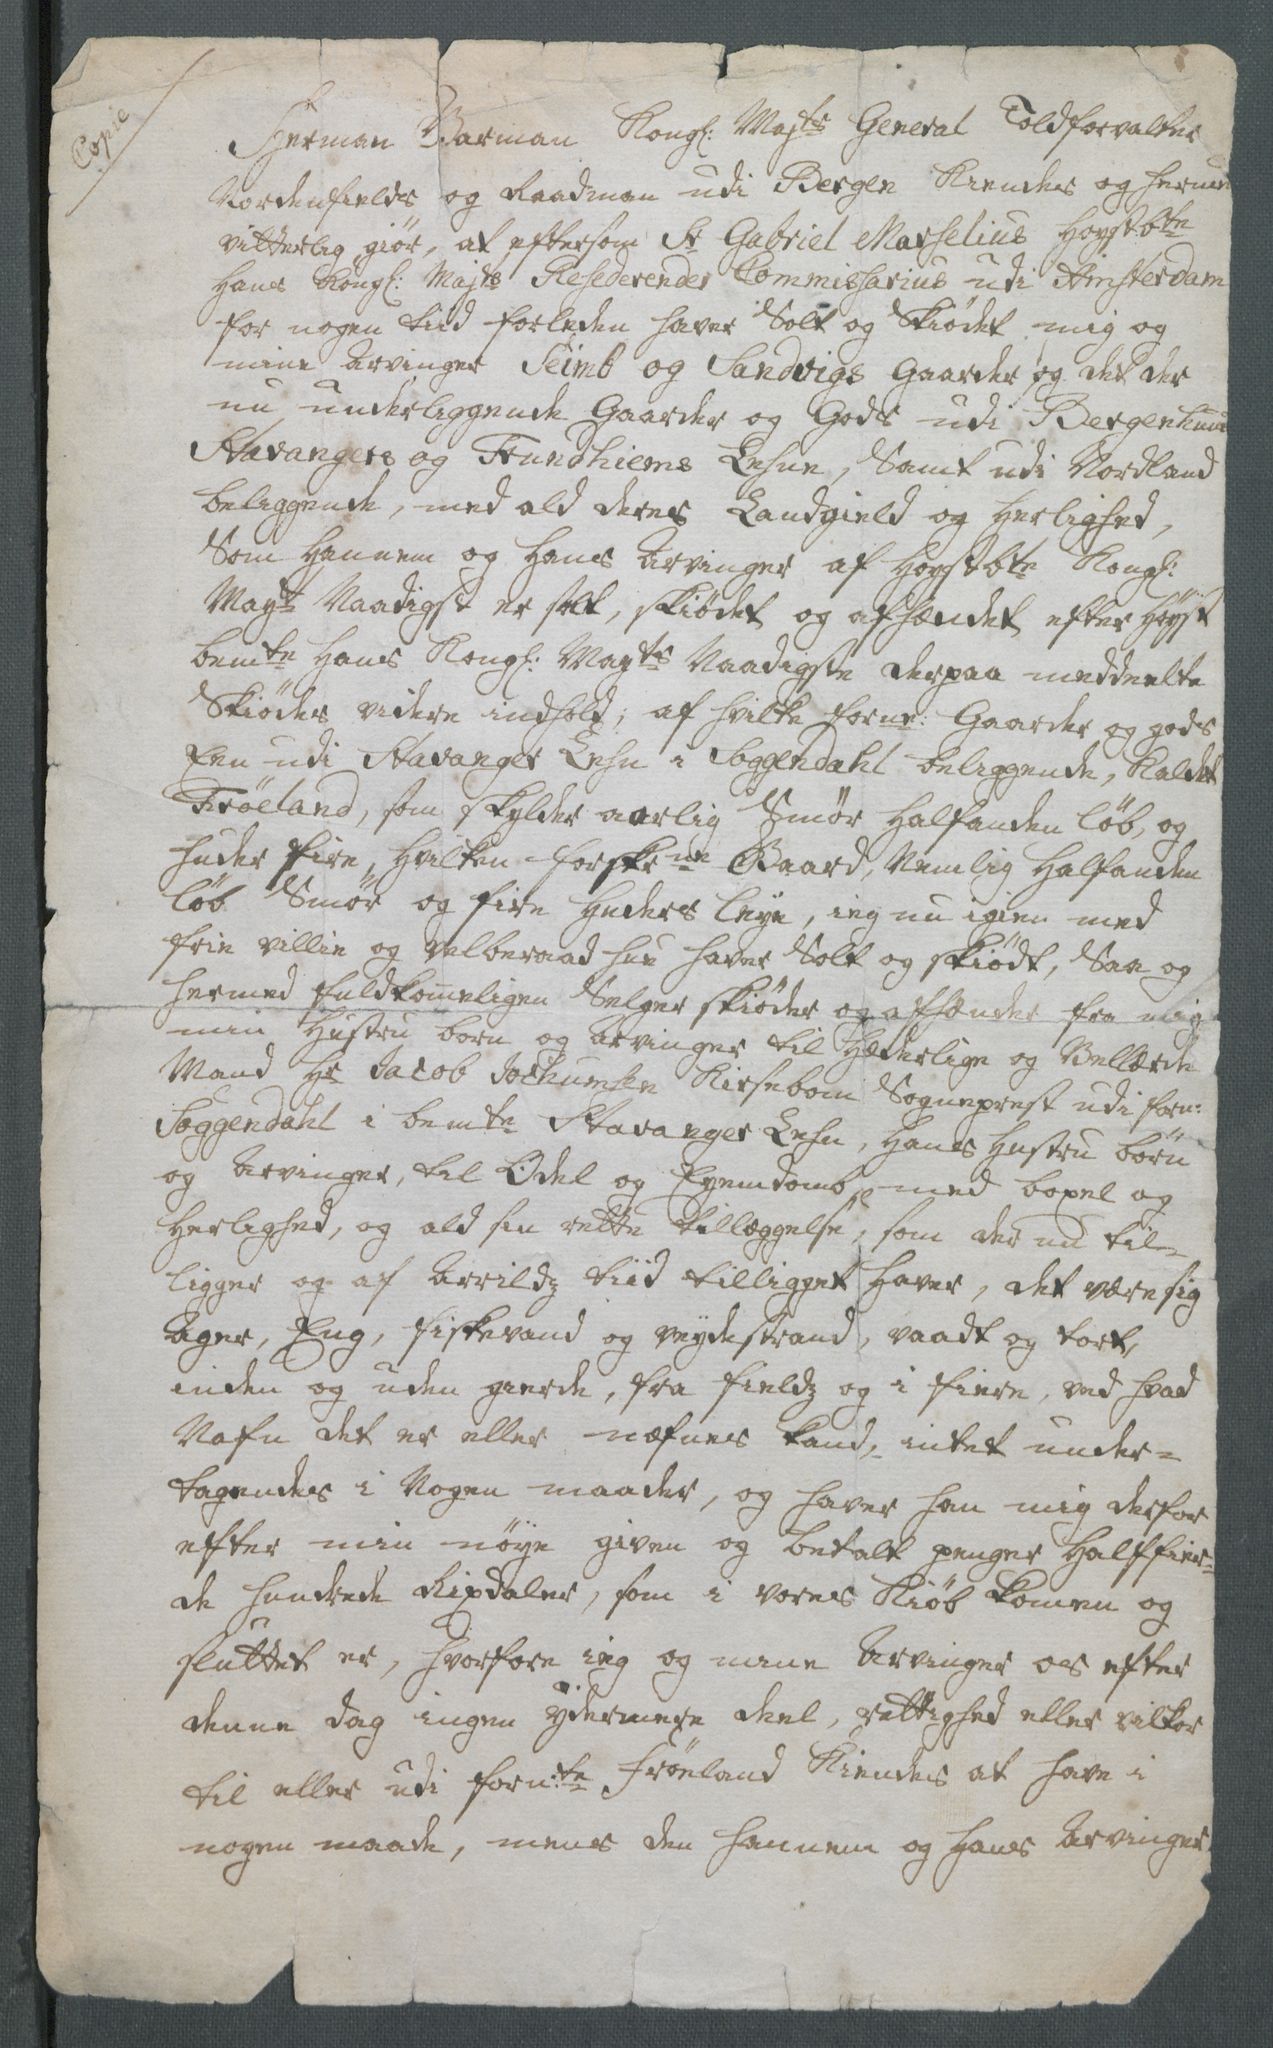 Copie
Herman Garman Kongl: Majts General Toldforvalter
Nordenfields og Raadman udi Bergen Kiendes og herved
vitterlig giör, at eftersom Sr Gabriel Marselius Høystbte
Hans Kongl: Majts Resederendes Commissarius udi Amsterdam
for nogen tiid forleden haver Solt og Skiødet mig og
mine Arvinger Seimb og Sandvigs Gaarder og det der
nu underliggende Gaarder og Gods udi Bergenhuus
Stavangers og Trundhiems Lehne, Samt udi Nordland
beliggende, med ald deres Landgield og Herlighed,
Som Hannem og Hans Arvinger af Høystbte Kongl:
Mayts Naadigst er solt, skiødet og afhændet efter Høyst
bemte Hans Kongl: Mayts Naadigste derpaa meddeelte
Skiødes videre indhold; af hvilke forne: Gaarder og gods
Een udi Stavanger Lehn i Soggendahl beliggende, Kaldet
Frøeland, som skylder aarlig Smör Halfanden löb, og
huder fire, hvilken forskrne Gaard, Nemlig Halfanden
löb Smör og fire Huders leye, ieg nu igien med
frie villie og velberaad hue haver Solt og skiödt, Saa og
hermed fuldkommeligen Selger skiøder og afhænder fra mig
min Hustru born og Arvinger til Hæderlige og Vellærde
Mand Hr Jacob Jochumsen Kirsebom Sogneprest udi forn:
Soggendahl i bemte Stavanger Lehn, Hans Hustru börn
og Arvinger, til Odel og Eyendomb, med boxel og
Herlighed, og ald sin rette tillæggelse, som der nu til-
ligger og af Arrildz tiid tilligget haver, det være sig
Ager, Eng, fiskevand og veydestrand, vaadt og tort,
inden og uden gierde, fra fieldz og i fiere, ved hvad
Nafn det er eller næfnes kand, intet under-
tagendes i Nogen maader, og haver han mig derfor
efter min nöye given og betalt penger Halffier-
de hundrede Rixdaler, som i vores Kiöb komen og
sluttet er, hvorfore ieg og mine Arvinger os efter
denne dag ingen ydermere deel, rettighed eller vilkor
til eller udi forn:te Fröeland Kiendes at have i
nogen maade, mens den hannem og hans Arvinger